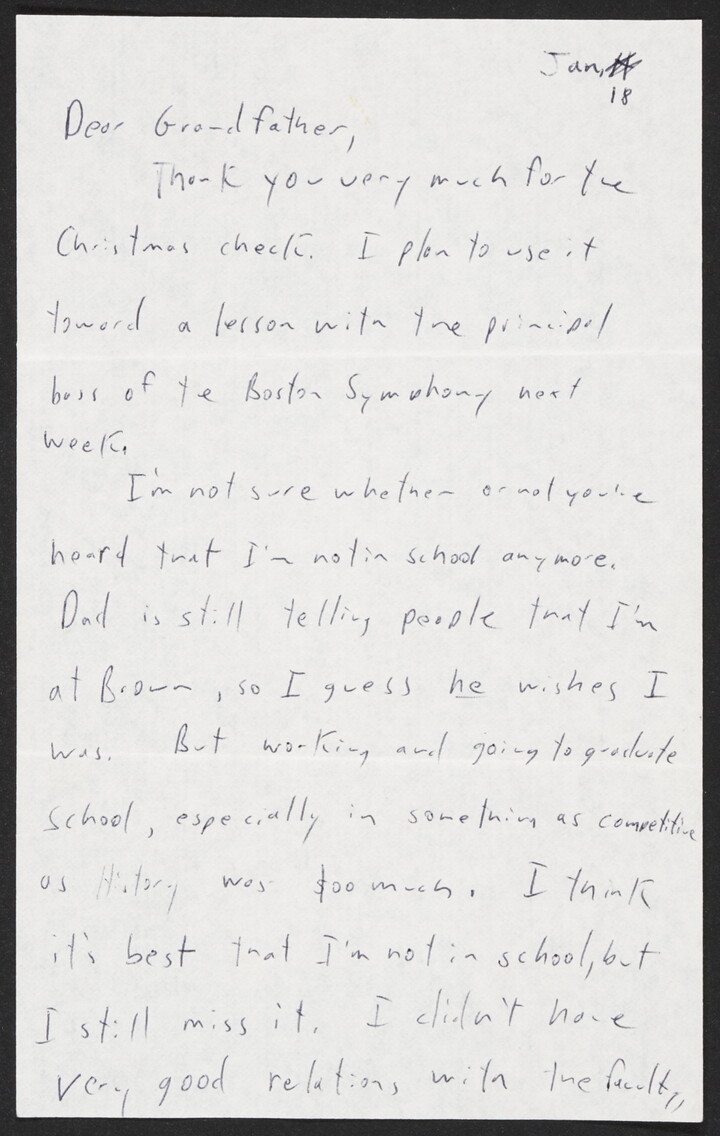 Jan.
18
Dear Grandfather,
Thank you very much for the
Christmas check. I plan to use it
toward a lesson with the principal
bass of the Boston Symphony next
week.
I'm not sure whether or not you've
heard that I'm not in school anymore.
Dad is still telling people that I'm
at Brown, so I guess he wishes I
was. But working and going to graduate
school, especially in something as competitive
as History was too much. I think
it's best that I'm not in school, but
I still miss it. I didn't have
very good relations with the faculty,